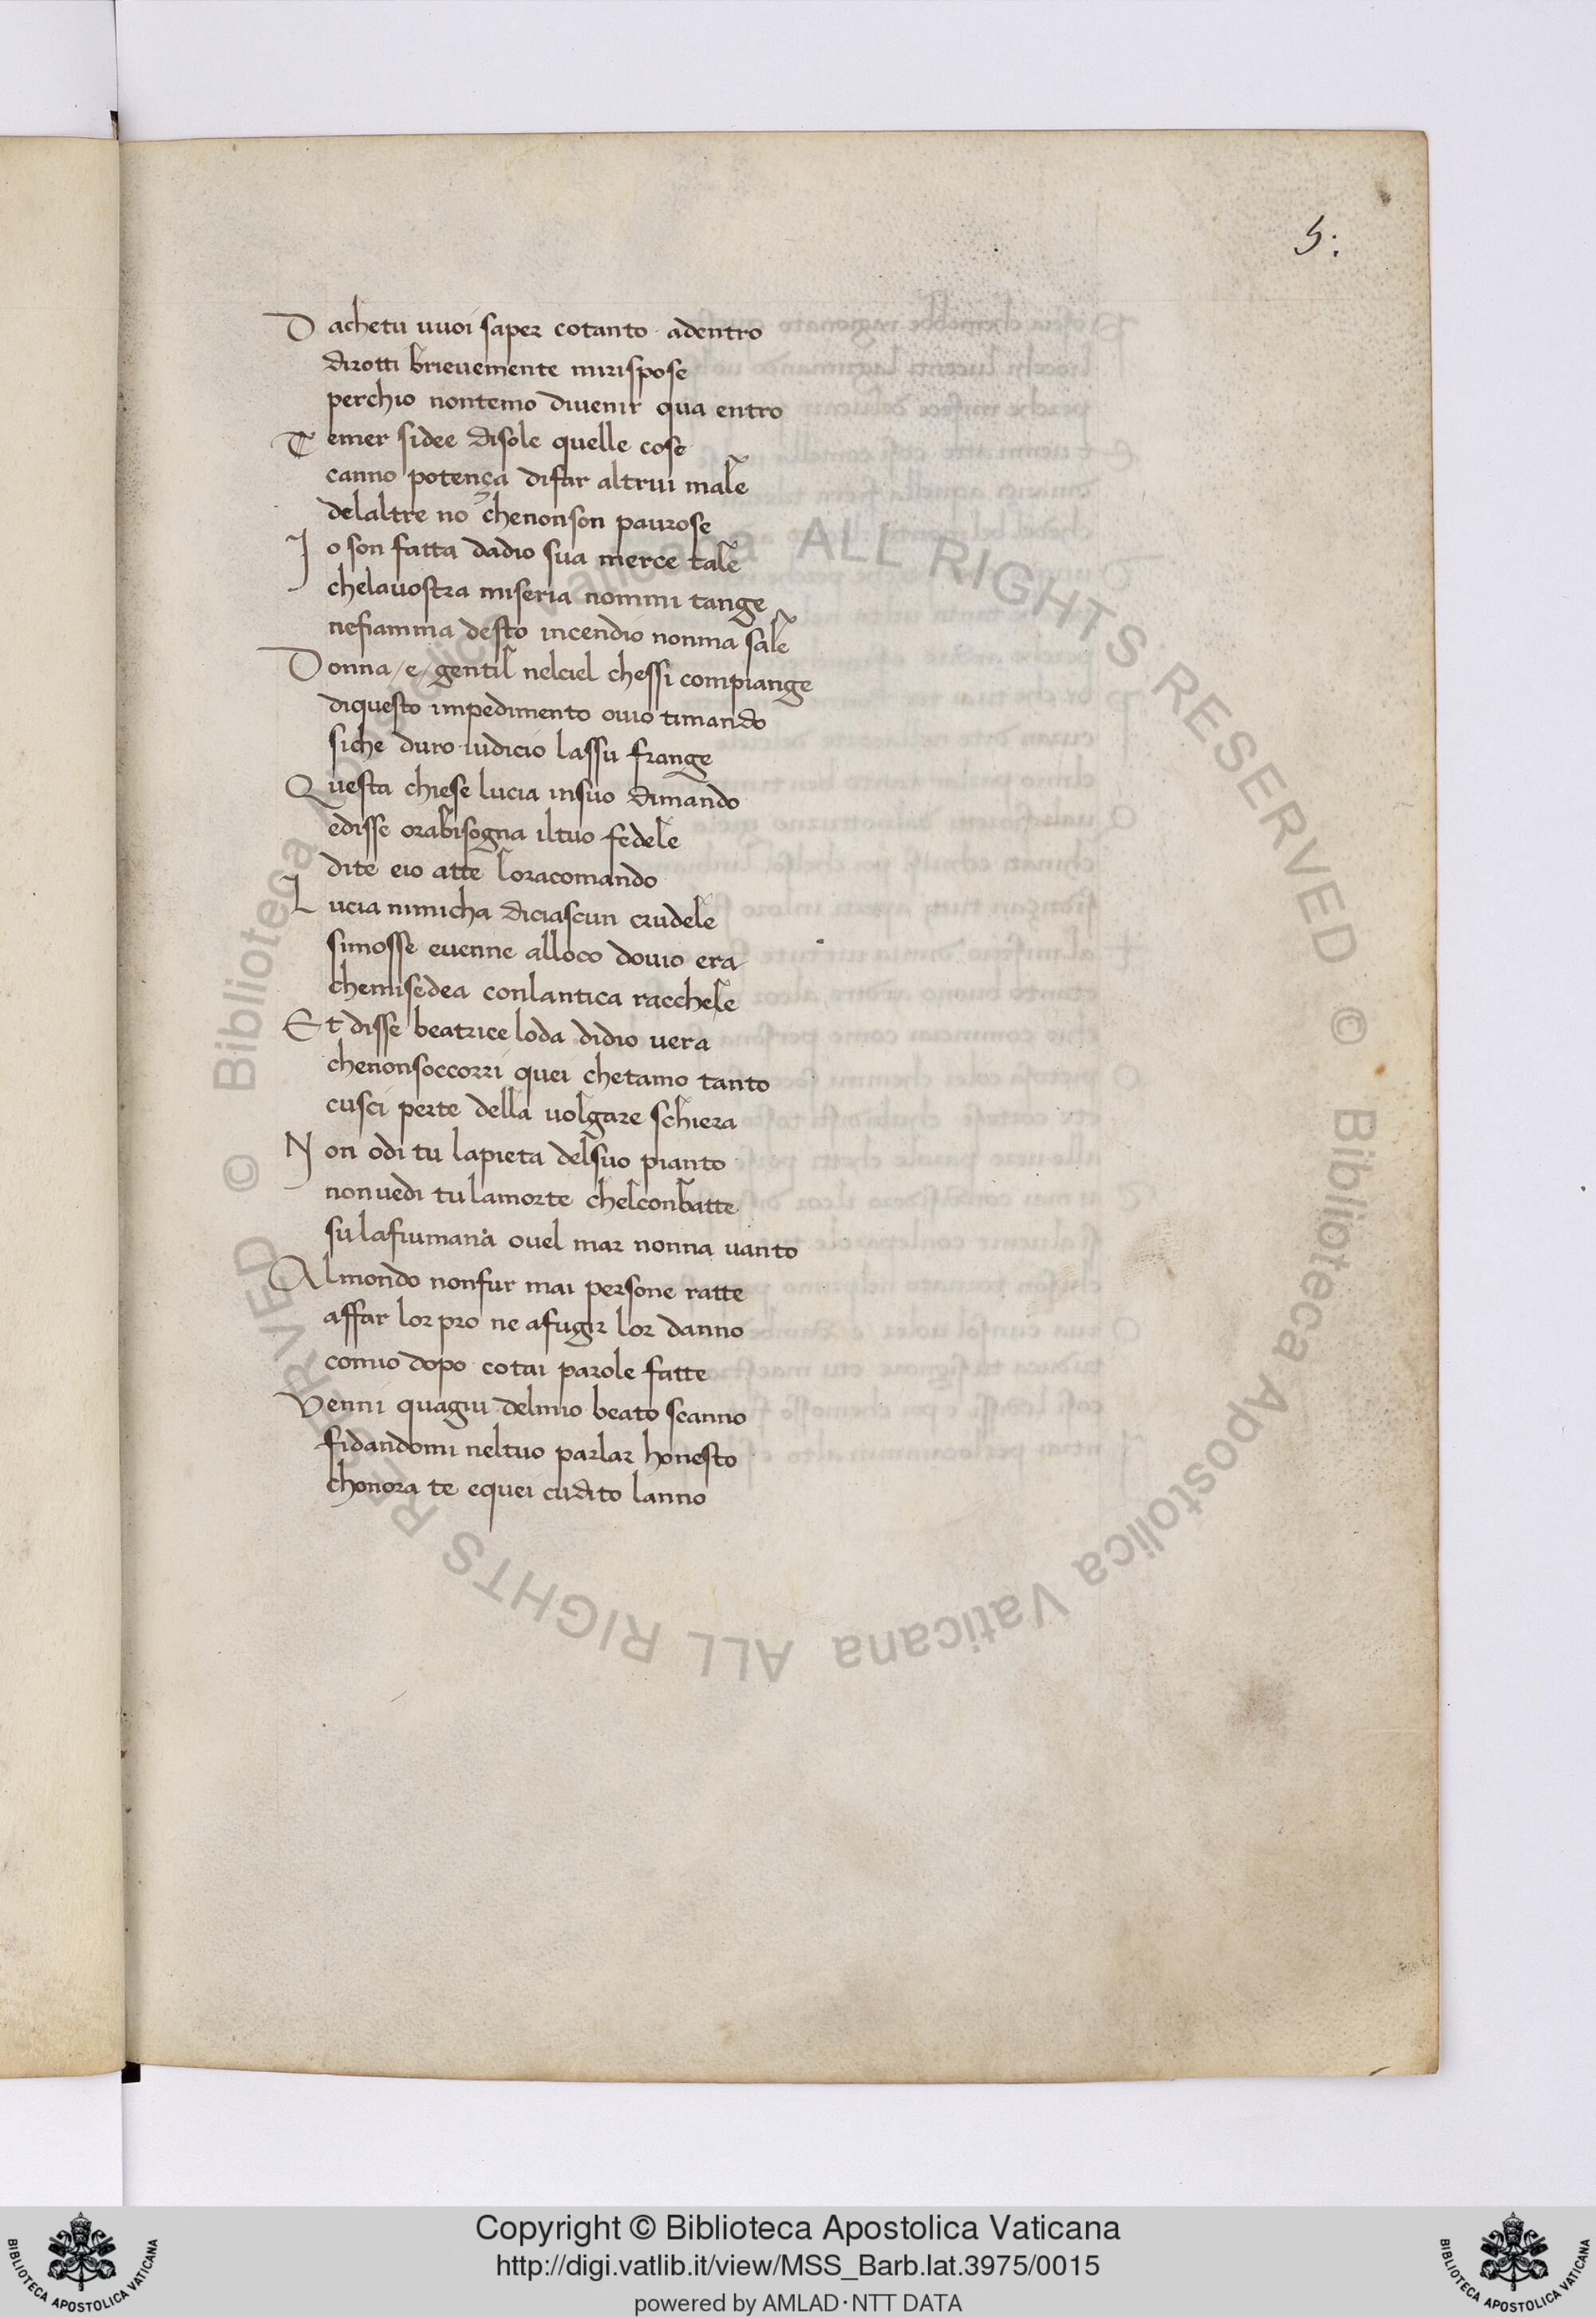 5:
Dachetu vuoi saper cotanto adentro
dirotti brievemente mirispose
perchio nontemo divenir qua entro
Temer sidee disole quelle cose
canno potença difar altrui male
delaltre no chenonson paurose
Io son fatta dadio sua merce tale
chelavostra miseria nommi tange
nefiamma desto incendio nonma sale
Donna /e/ gentil nelciel chessi compiange
diquesto impedimento ovio timando
siche duro iudicio lassu frange
Questa chiese lucia insuo dimando
edisse orabisogna iltuo fedele
dite eio atte loracomando
Lucia nimicha diciascun crudele
simosse evenne alloco dovio era
chemisedea conlantica racchele
Et disse beatrice loda didio vera
chenonsoccorri quei chetamo tanto
cusci perte della volgare schiera
Non odi tu lapieta delsuo pianto
nonvedi tu lamorte chelconbatte
su lafiumana ovel mar nonna vanto
Almondo nonfur mai persone ratte
affar lor pro ne afugir lor danno
comio dopo cotai parole fatte
Venni quagiu delmio beato scanno
fidandomi neltuo parlar honesto
chonora te equei cudito lanno
© Biblioteca Apostolica Vaticana ALL RIGHTS RESERVED © Biblioteca Apostolica Vaticana ALL RIGHTS RESERVED
Copyright © Biblioteca Apostolica Vaticana
http://digi.vatlib.it/view/MSS_Barb.lat.3975/0015
powered by AMLAD·NTT DATA
BIBLIOTECA APOSTOLICA VATICANA
BIBLIOTECA APOSTOLICA VATICANA